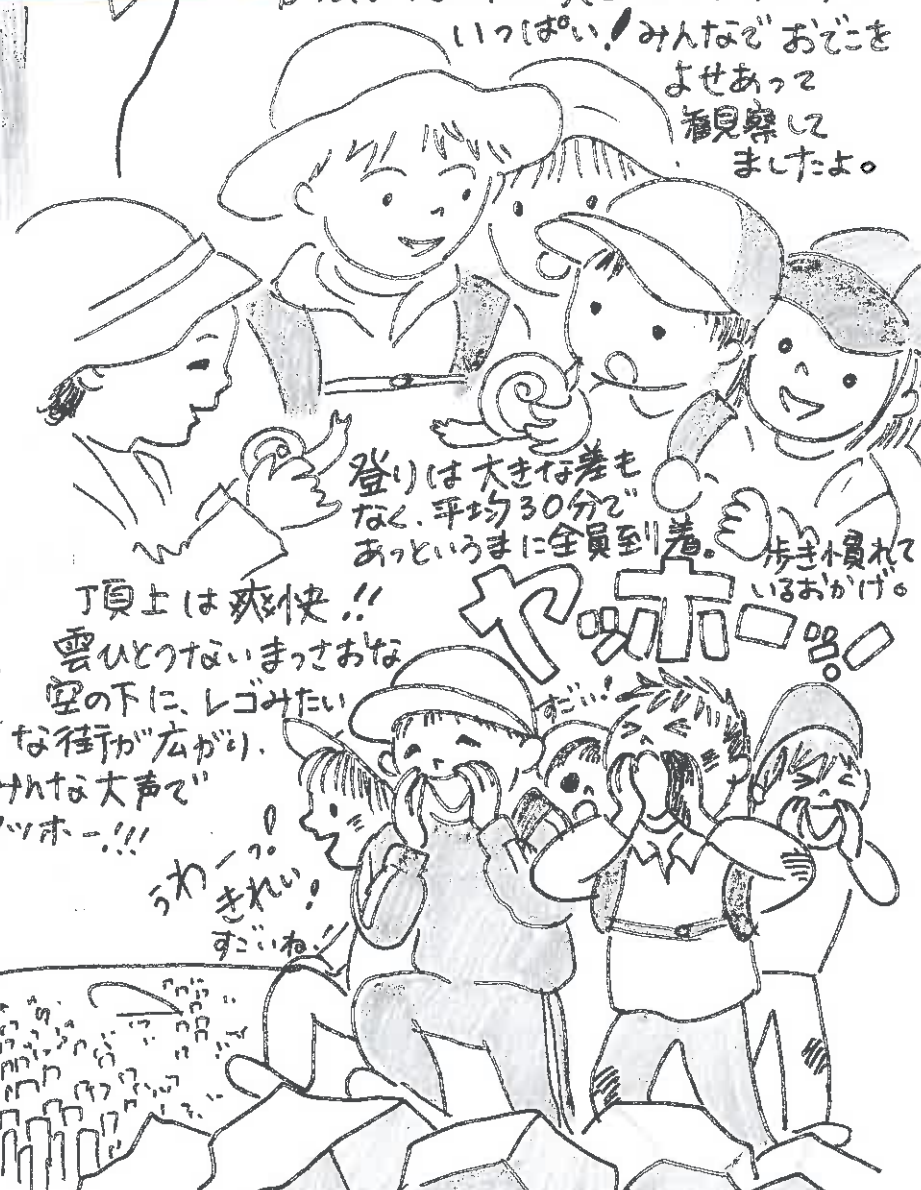 いっぱい!みんなで おでこを
よせあって
観察して
ましたよ。
登りは大きな差も
なく、平均30分で
あっというまに全員到着。
歩き慣れて
いるおかげ。
頂上は爽快!!
雲ひとつないまっさおな
空の下に、レゴみたい
な街が広がり、
みんな大声で
ヤッホー!!!
ヤッホーッ!!
すごい!
うわーっ。!
きれい!
すごいね!